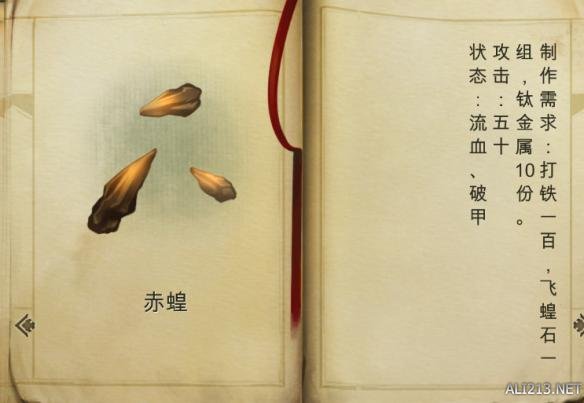 赤蝗
制作需求：打铁一百，飞蝗石一
组，钛金属10份。
攻击：五十
状态：流血、破甲
ALI213.NET